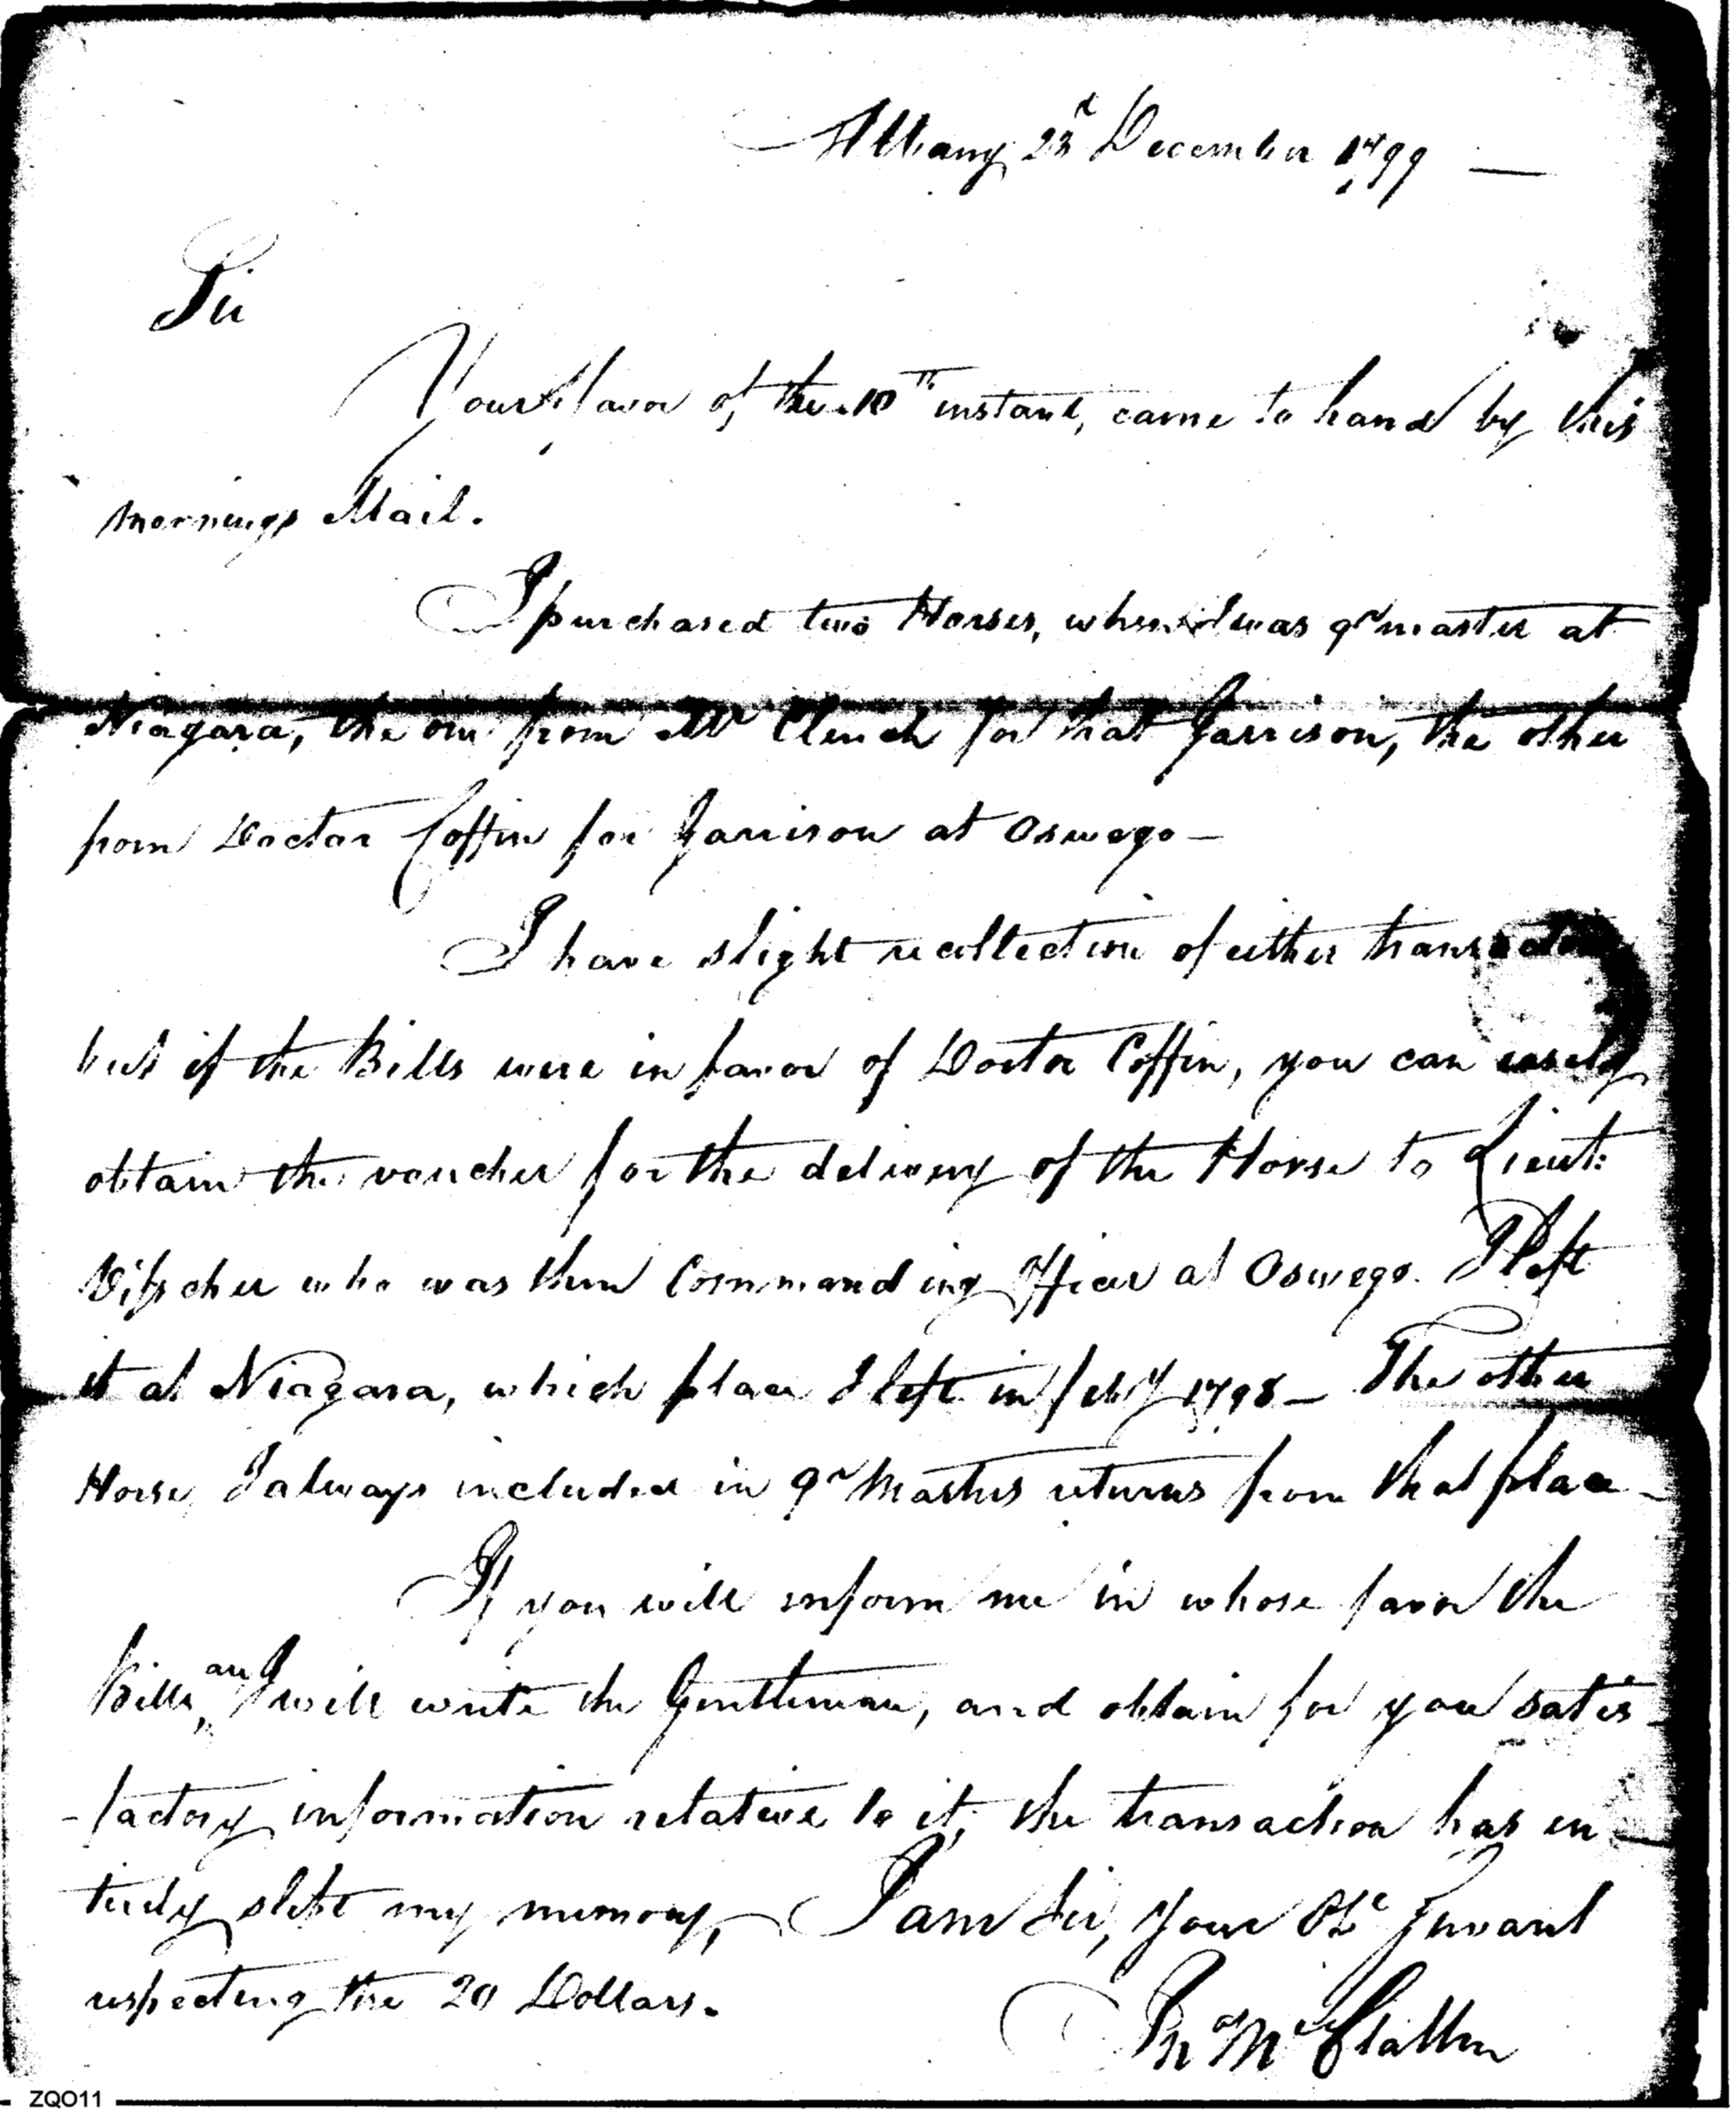 Albany 23d December 1799 —
Sir
Your favor of the 10th instant, came to hand by this
mornings Mail.
I purchased two Horses, when I was qr master at
Niagara, the one from Mr Clench for that Garrison, the other
from Doctor Coffin for Garrison at Oswego —
I have slight recollection of either transaction
but if the Bills were in favor of Doctor Coffin, you can easely
obtain the voucher for the delivery of the Horse to Lieut:
Visscher who was then Commanding Officer at Oswego. I left
it at Niagara, which place I left in feby 1798 — The other
Horse, I always included in qr Masters returns from that place —
If you will inform me in whose favor the
Bills, are I will write the Gentleman, and obtain for you satis-
-factory information relative to it; the transaction has en-
tirely slipt my memory, I am Sir, Your Obt Servant
respecting the 20 Dollars.
Jn McClallen
ZQO11